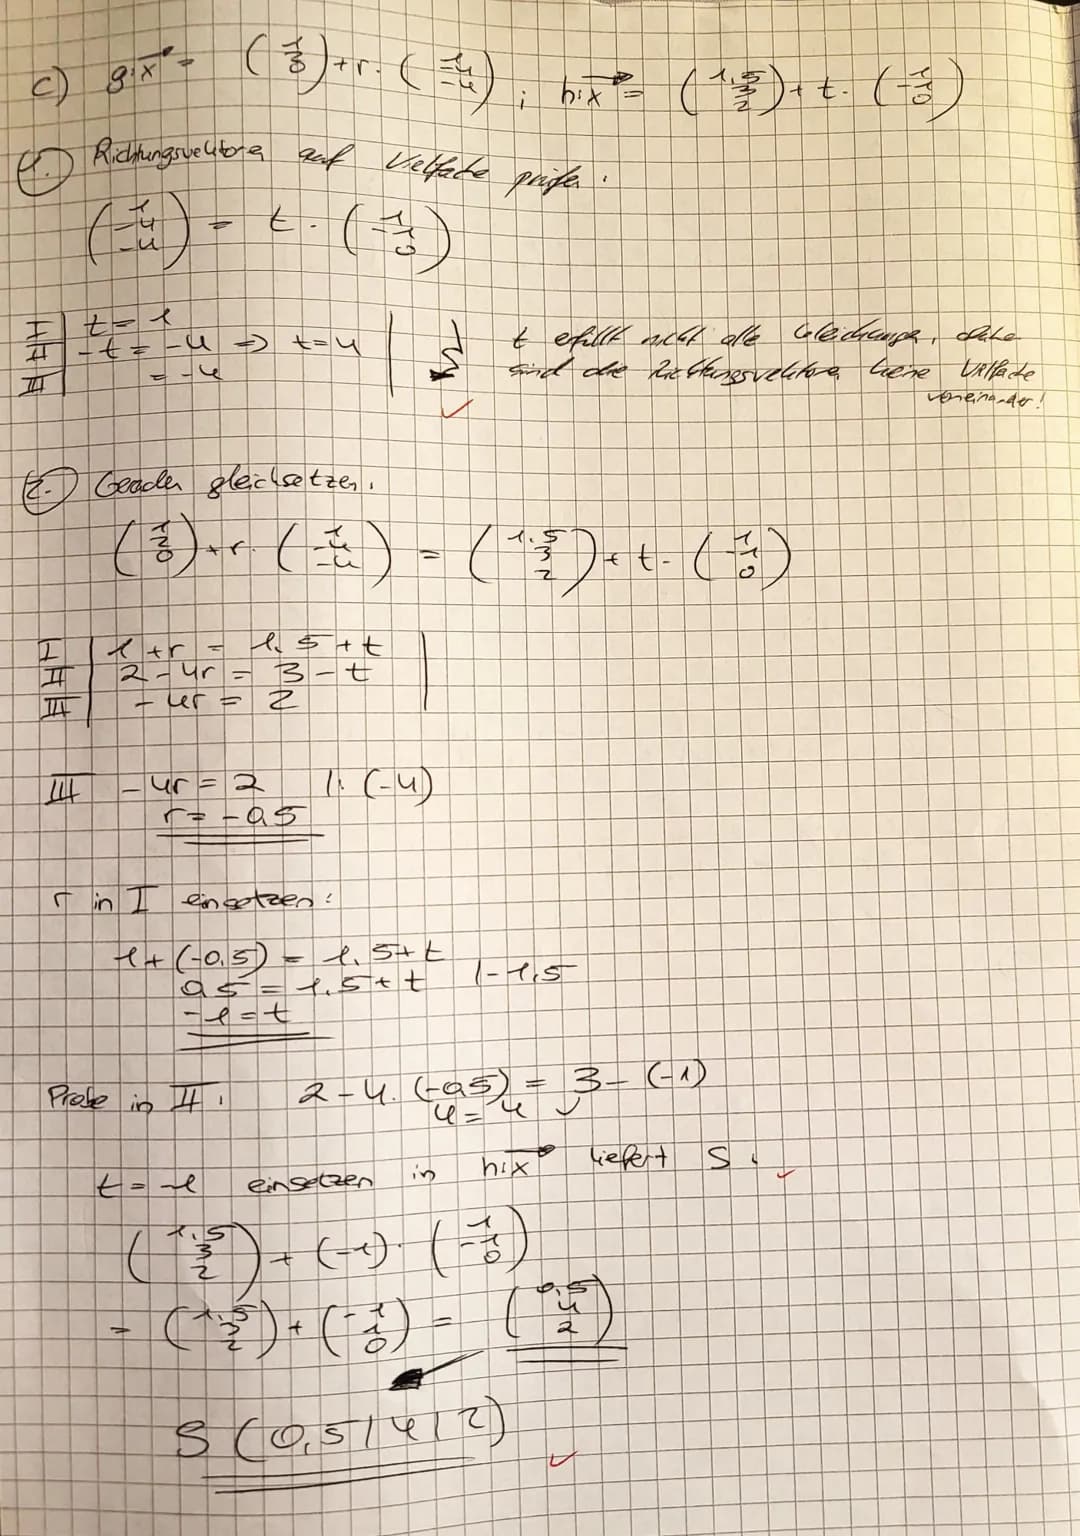 c) g:x⃗ = (1 2 0) + r · (1 -4 -4) ; h:x⃗ = (1,5 3 2) + t · (1 -1 0)
1. Richtungsvektoren auf Vielfache prüfen:
(1 -4 -4) = t · (1 -1 0)
I | t = 1
II | -t = -4 ⇒ t = 4 | t erfüllt nicht alle Gleichungen, daher
III | = -4 | sind die Richtungsvektoren keine Vielfache
voneinander!
2. Geraden gleichsetzen:
(1 2 0) + r · (1 -4 -4) = (1,5 3 2) + t · (1 -1 0)
I | 1 + r = 1,5 + t |
II | 2 - 4r = 3 - t |
III | -4r = 2 |
III -4r = 2 |: (-4)
r = -0,5
r in I einsetzen:
1 + (-0,5) = 1,5 + t
0,5 = 1,5 + t |-1,5
-1 = t
Probe in II: 2 - 4 · (-0,5) = 3 - (-1)
4 = 4 ✓
t = -1 einsetzen in h:x⃗ liefert S:
(1,5 3 2) + (-1) · (1 -1 0)
= (1,5 3 2) + (-1 1 0) = (0,5 4 2)
S (0,5 | 4 | 2)